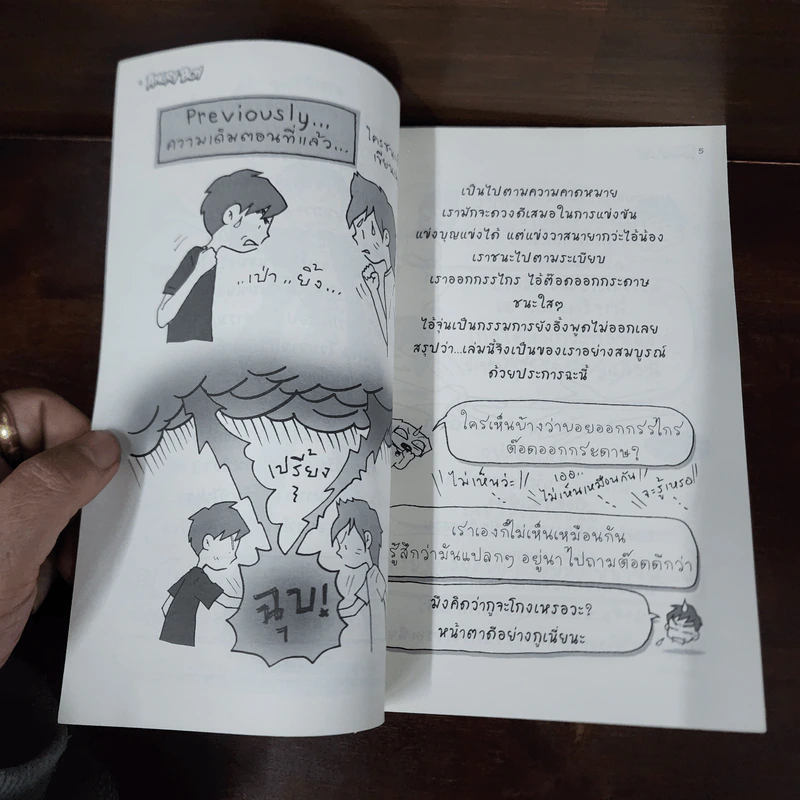 ANGRY BOY
Previously...
ความเดิมตอนที่แล้ว...
..เป่า ..ยิ้ง...
เปรี้ยง
!
ฉุบ!
5
เป็นไปตามความคาดหมาย
เรามักจะดวงดีเสมอในการแข่งขัน
แข่งบุญแข่งได้ แต่แข่งวาสนายากว่ะไอ้น้อง
เราชนะไปตามระเบียบ
เราออกกรรไกร ไอ้ต๊อดออกกระดาษ
ชนะใสๆ
ไอ้จุ่นเป็นกรรมการยังอึ้งพูดไม่ออกเลย
สรุปว่า...เล่มนี้จึงเป็นของเราอย่างสมบูรณ์
ด้วยประการฉะนี้
ใครเห็นบ้างว่าบอยออกกรรไกร
ต๊อดออกกระดาษ?
ไม่เห็นว่ะ
เออ..
ไม่เห็นเหมือนกัน
จะรู้เหรอ
เราเองก็ไม่เห็นเหมือนกัน
รู้สึกว่ามันแปลกๆ อยู่นา ไปถามต๊อดดีกว่า
มึงคิดว่ากูจะโกงเหรอวะ?
หน้าตาดีอย่างกูเนี่ยนะ